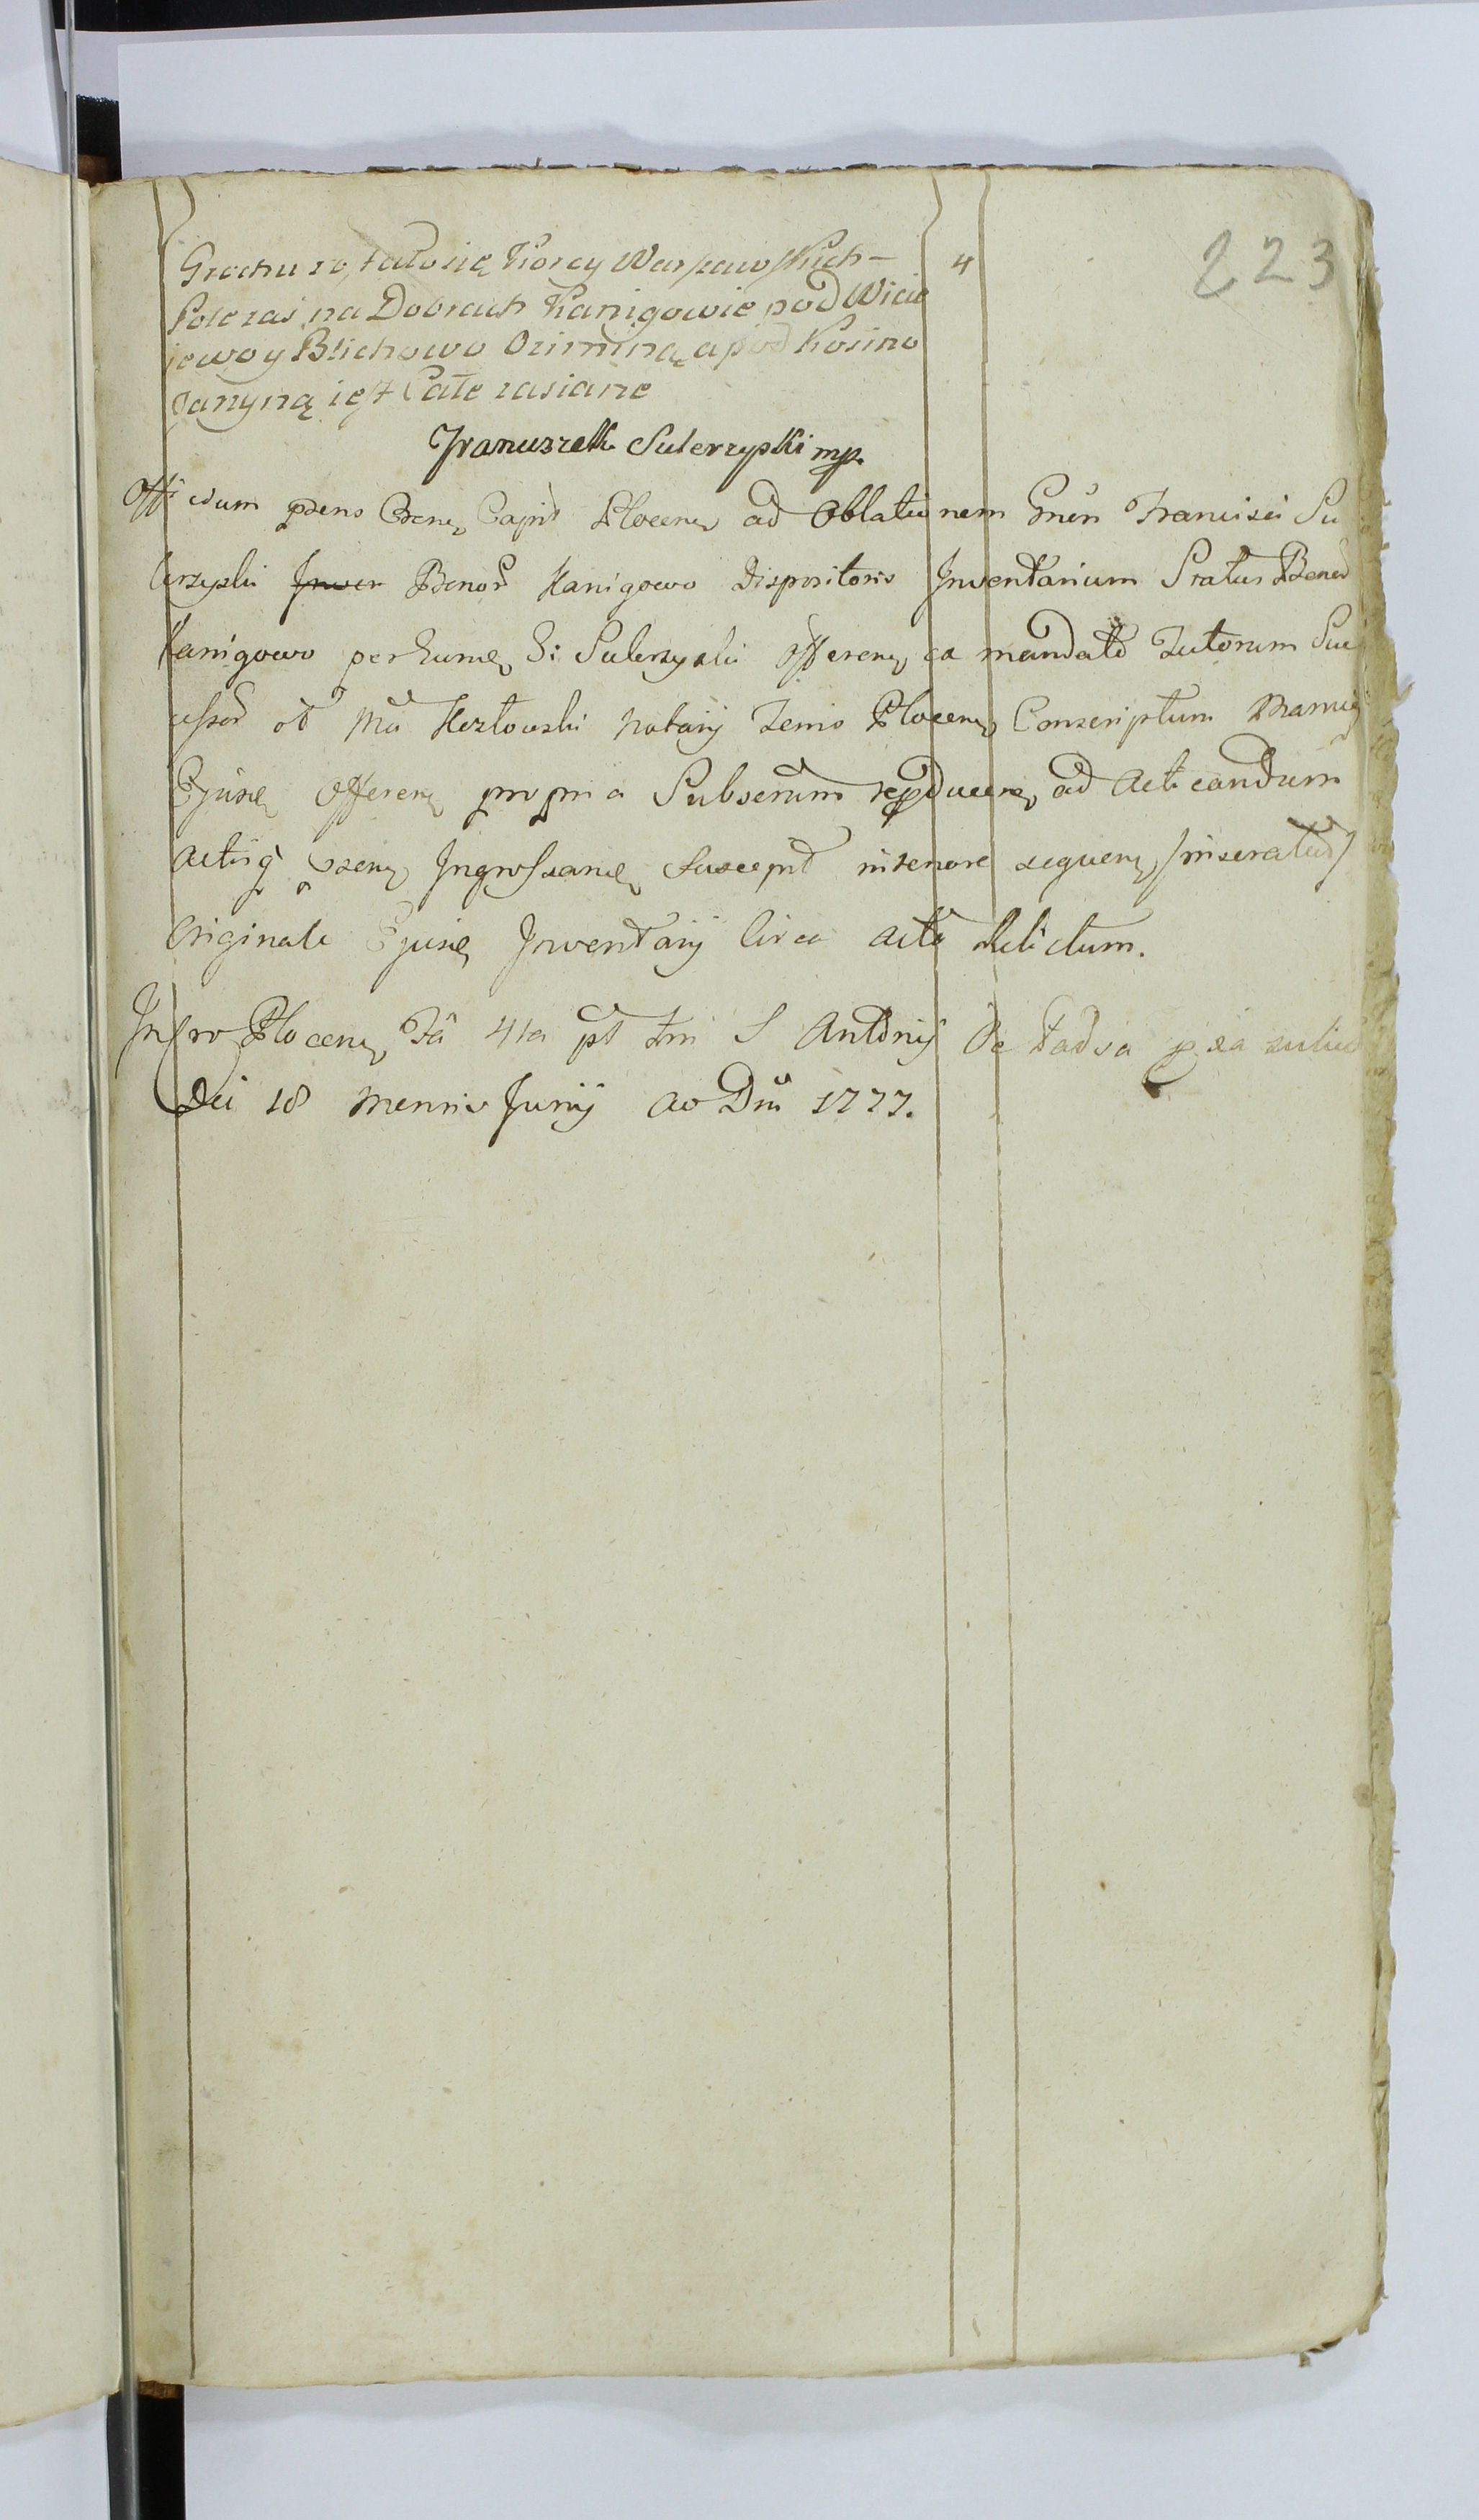 223
Grochu zostało się Korcy Warszawskich — 4
Pole zas na Dobrach Kanigowie pod Wicie
jewo y Blichowo Oziminą a pod Kosino
Jarzyną iest Całe zasiane
Franuszek Sulerzyski mp.
Officium pñens Capit Plocen ad Oblationem Gněn Francisci Su
lerzyski Inven Bonor Kanigowo Dispositoris Inventarium Status Bonor
Kanigowo per Eundē G: Sulerzyski Offeren ex mandato Tutorum Suc
cessor et Mci Kozłowski Notarij Tenis Plocen Conscriptum Manuq
Ejusd Offeren propria Subscrium reproducen ad acticandum
actisq pñen Ingrossand suscepit in tenore sequen /inseratur/
Originale Ejusd Inventarij circa acta relictum.
In Cro Plocen Fā 4ta pt fm S Antonij De Padua
Die 18 Mensis Junij Ao Dni 1777.